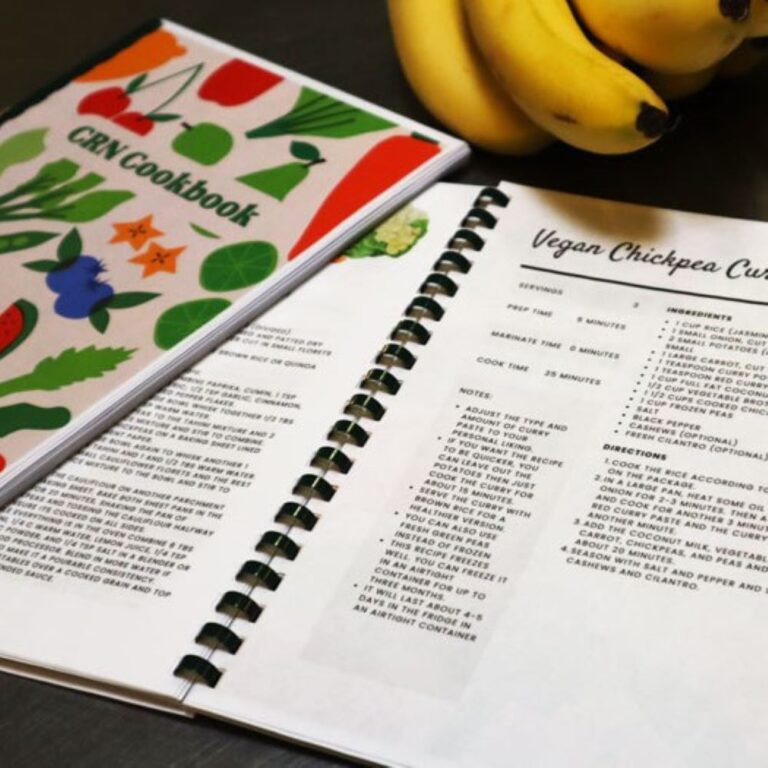 CRN Cookbook
(DIVIDED)
AND PATTED DRY
OUT IN SMALL FLORETS
BROWN RICE OR QUINOA
PAPRIKA, CUMIN, 1 TSP
TSP GARLIC, CINNAMON,
PEPPER FLAKES
BOWL WHISK TOGETHER 1/2 TBS
WARM WATER
TAHINI MIXTURE AND 2
MIXTURE AND STIR TO COMBINE
ON A BAKING SHEET LINED
PAPER.
AGAIN TO WHISK ANOTHER 1
TAHINI AND 1 AND 1/2 TBS WARM WATER
CAULIFLOWER FLORETS AND THE REST
MIXTURE TO THE BOWL AND STIR TO
THE CAULIFLOWER ON ANOTHER PARCHMENT
SHEET. BAKE BOTH SHEET PANS IN THE
20 MINUTES, SHAKING THE PAN OF
AND TOSSING THE CAULIFLOWER HALFWAY
ON ALL SIDES.
EVERYTHING IS IN THE OVEN COMBINE 6 TBS
1/4 C WARM WATER, LEMON JUICE, 1/4 TSP
POWDER, AND 1/4 TSP SALT IN A BLENDER OR
PROCESSOR. BLEND IN MORE WATER IF
MAKE IT A POURABLE CONSISTENCY.
VEGETABLES OVER A COOKED GRAIN AND TOP
SAUCE.
Vegan Chickpea Cur
SERVINGS 3
PREP TIME 5 MINUTES
MARINATE TIME 0 MINUTES
COOK TIME 25 MINUTES
NOTES:
• ADJUST THE TYPE AND
AMOUNT OF CURRY
PASTE TO YOUR
PERSONAL LIKING.
• IF YOU WANT THE RECIPE
TO BE QUICKER, YOU
CAN LEAVE OUT THE
POTATOES THEN JUST
COOK THE CURRY FOR
ABOUT 15 MINUTES.
• SERVE THE CURRY WITH
BROWN RICE FOR A
HEALTHIER VERSION.
• YOU CAN ALSO USE
FRESH GREEN PEAS
INSTEAD OF FROZEN
• THIS RECIPE FREEZES
WELL. YOU CAN FREEZE IT
IN AN AIRTIGHT
CONTAINER FOR UP TO
THREE MONTHS.
• IT WILL LAST ABOUT 4-5
DAYS IN THE FRIDGE IN
AN AIRTIGHT CONTAINER
INGREDIENTS
• 1 CUP RICE (JASMIN
• 1 SMALL ONION, CUT
• 2 SMALL POTATOES (
SMALL
• 1 LARGE CARROT, CUT
• 1 TEASPOON CURRY PO
• 1 TEASPOON RED CURRY
• 1 CUP FULL FAT COCONUT
• 1/2 CUP VEGETABLE BROT
• 1 1/2 CUPS COOKED CHICK
• 1 CUP FROZEN PEAS
• SALT
• BLACK PEPPER
• CASHEWS (OPTIONAL)
• FRESH CILANTRO (OPTIONAL)
DIRECTIONS
1. COOK THE RICE ACCORDING TO
ON THE PACKAGE.
2. IN A LARGE PAN, HEAT SOME OIL
ONION FOR 2-3 MINUTES. THEN A
AND COOK FOR ANOTHER 3 MINU
RED CURRY PASTE AND THE CURR
ANOTHER MINUTE.
3. ADD THE COCONUT MILK, VEGETABL
CARROT, CHICKPEAS, AND PEAS AND
ABOUT 20 MINUTES.
4. SEASON WITH SALT AND PEPPER AND S
CASHEWS AND CILANTRO.